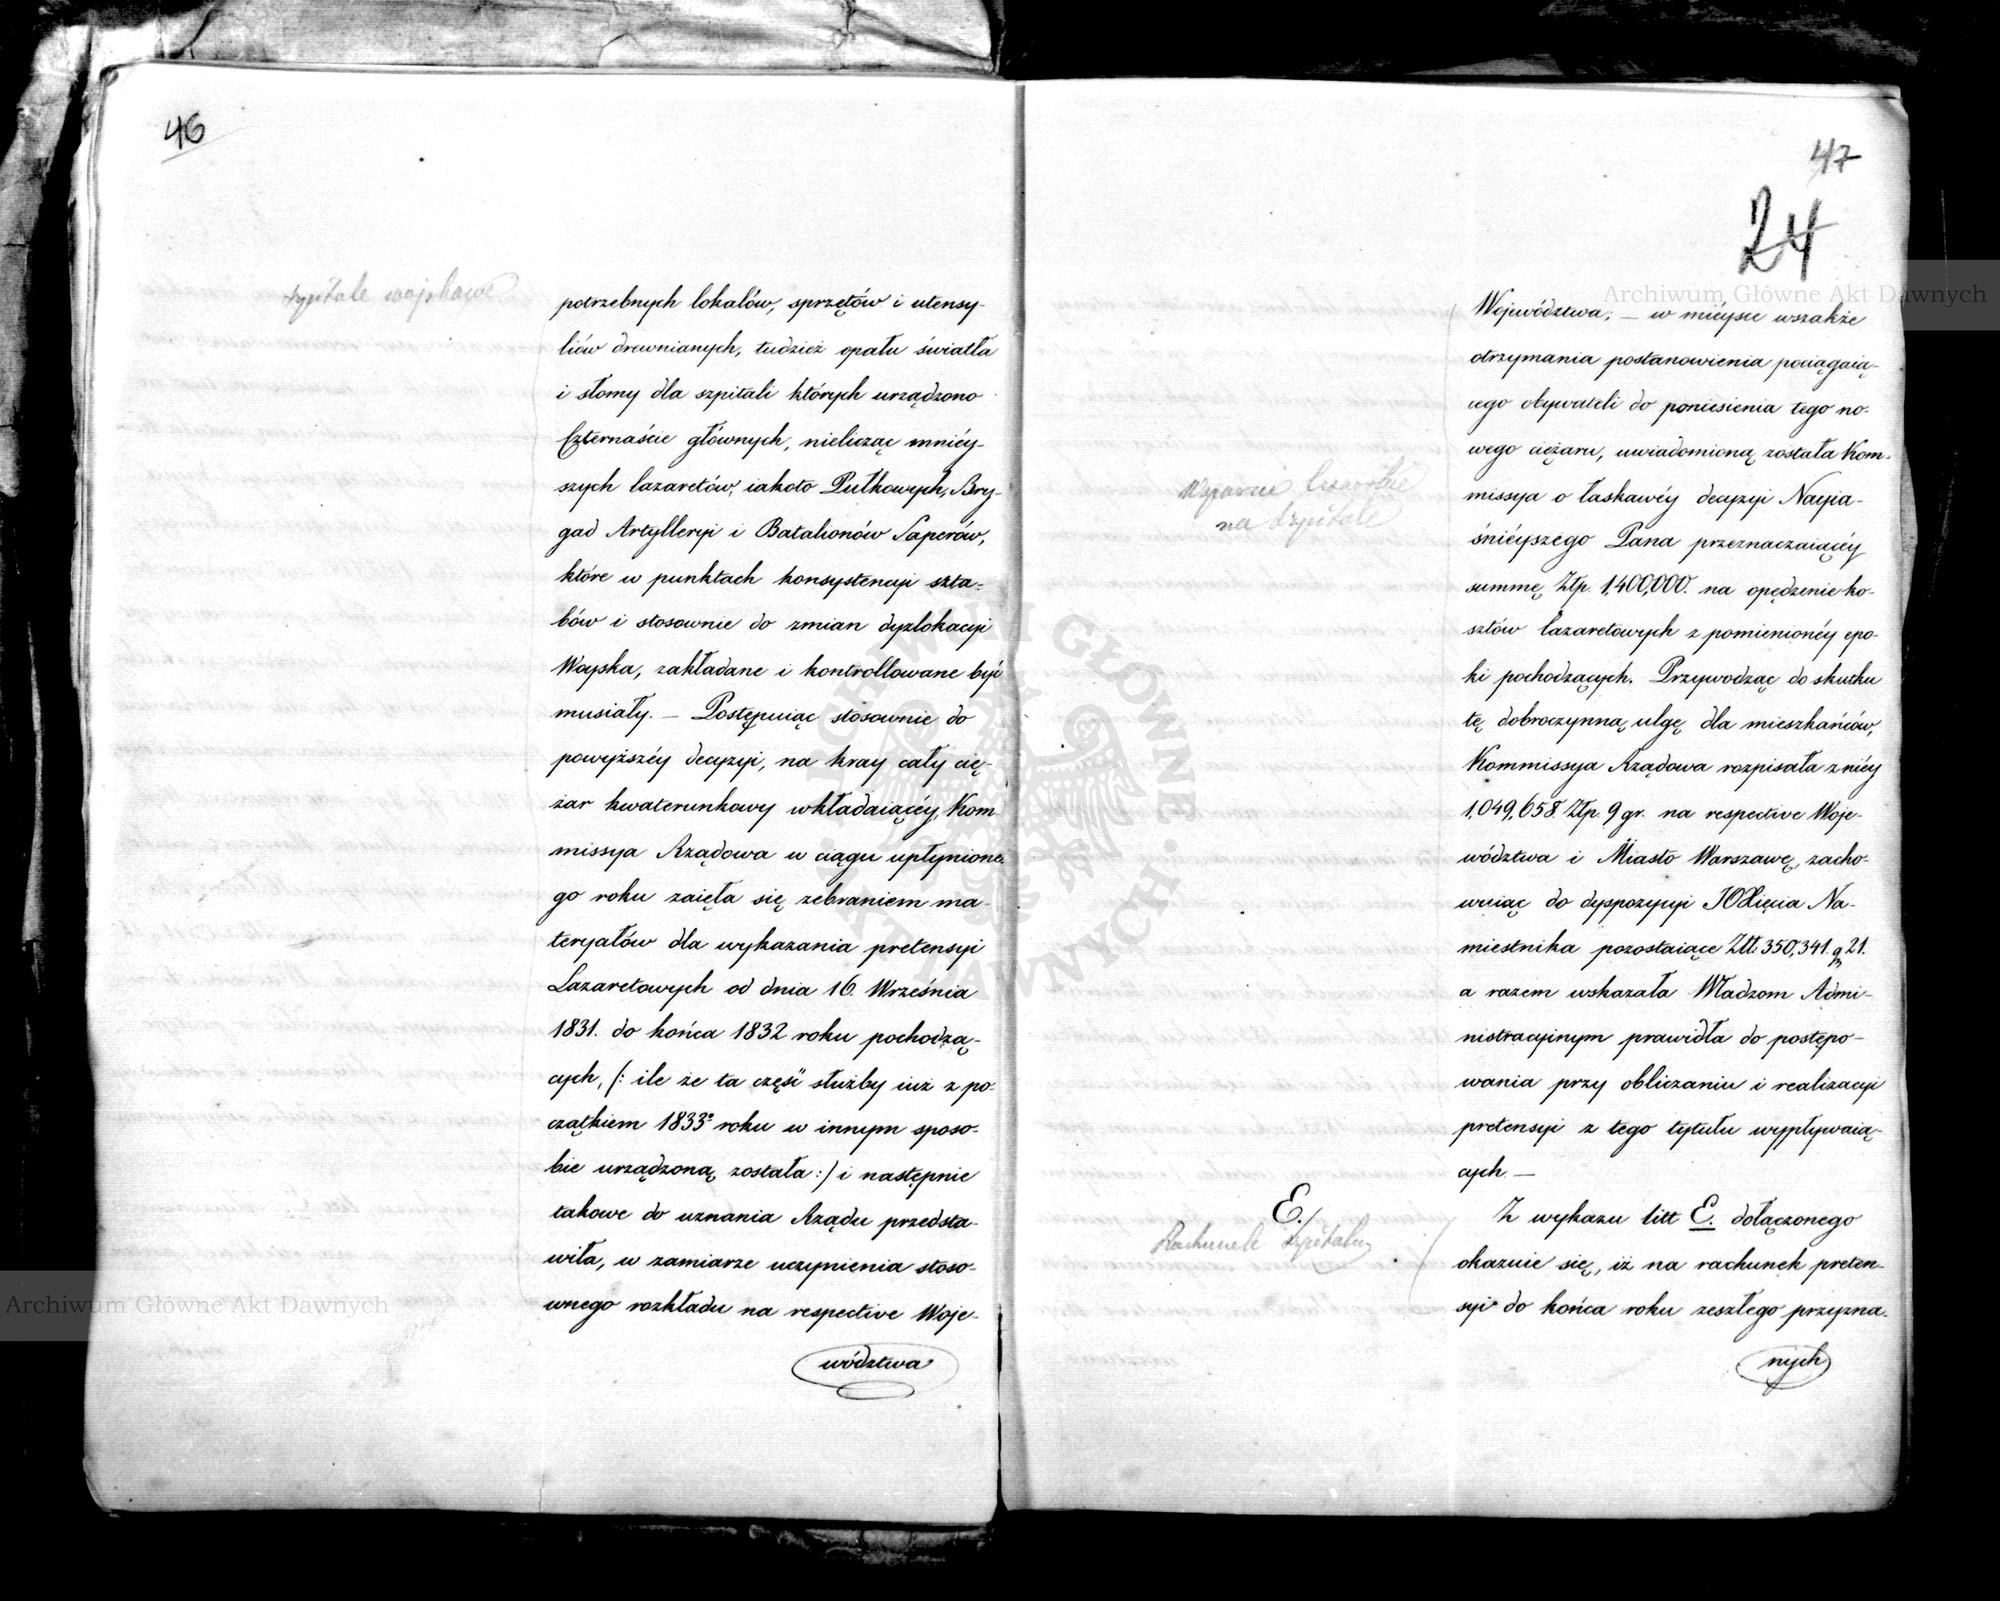 46
szpitale wojskowe
potrzebnych lokalów, sprzętów i utensy-
liów drewnianych, tudzież opału światła
i słomy dla szpitali których urządzono
Czternaście głównych, nielicząc mniéy-
szych lazaretów, iakoto Pułkowych, Bry-
gad Artylleryi i Batalionów Saperów,
które w punktach konsystencyi szta-
bów i stosownie do zmian dyzlokacyi
Woyska, zakładane i kontrollowane być
musiały. — Postępuiąc stosownie do
powyższéy decyzyi, na kray cały cię-
żar kwaterunkowy wkładaiącéy, Kom-
missya Rządowa w ciągu upłynione-
go roku zaięła się zebraniem ma-
teryałów dla wykazania pretensyi
Lazaretowych od dnia 16. Września
1831. do końca 1832 roku pochodzą-
cych, /: ile że ta część służby iuż z po-
czątkiem 1833º roku w innym sposo-
bie urządzoną została :/ i następnie
takowe do uznania Rządu przedsta-
wiła, w zamiarze uczynienia stoso-
wnego rozkładu na respective Woje-
wództwa
47
24
Województwa; — w miéysce wszakże
otrzymania postanowienia pociągaią-
cego obywateli do poniesienia tego no-
wego ciężaru, uwiadomioną została Kom-
missya o łaskawéy decyzyi Nayia-
śniéyszego Pana przeznaczaiącéy
summę Złp. 1,400,000. na opędzenie ko-
sztów lazaretowych z pomienionéy epo-
ki pochodzących. Przywodząc do skutku
tę dobroczynną ulgę dla mieszkańców,
Kommissya Rządowa rozpisała z niéy
1,049,658 Złp. 9 gr. na respective Woje-
wództwa i Miasto Warszawę, zacho-
wuiąc do dyspozycyi JOXięcia Na-
miestnika pozostaiące Złt. 350,341. g 21.
a razem wskazała Władzom Admi-
nistracyinym prawidła do postępo-
wania przy obliczaniu i realizacyi
pretensyi z tego tytułu wypływaią-
cych. —
na szpitale
E./
Rachunek szpitalny
Z wykazu litt E. dołączonego
okazuie się, iż na rachunek preten-
syi do końca roku zeszłego przyzna-
nych
Archiwum Główne Akt Dawnych
Archiwum Główne Akt Dawnych
ARCHIWUM GŁÓWNE AKT DAWNYCH